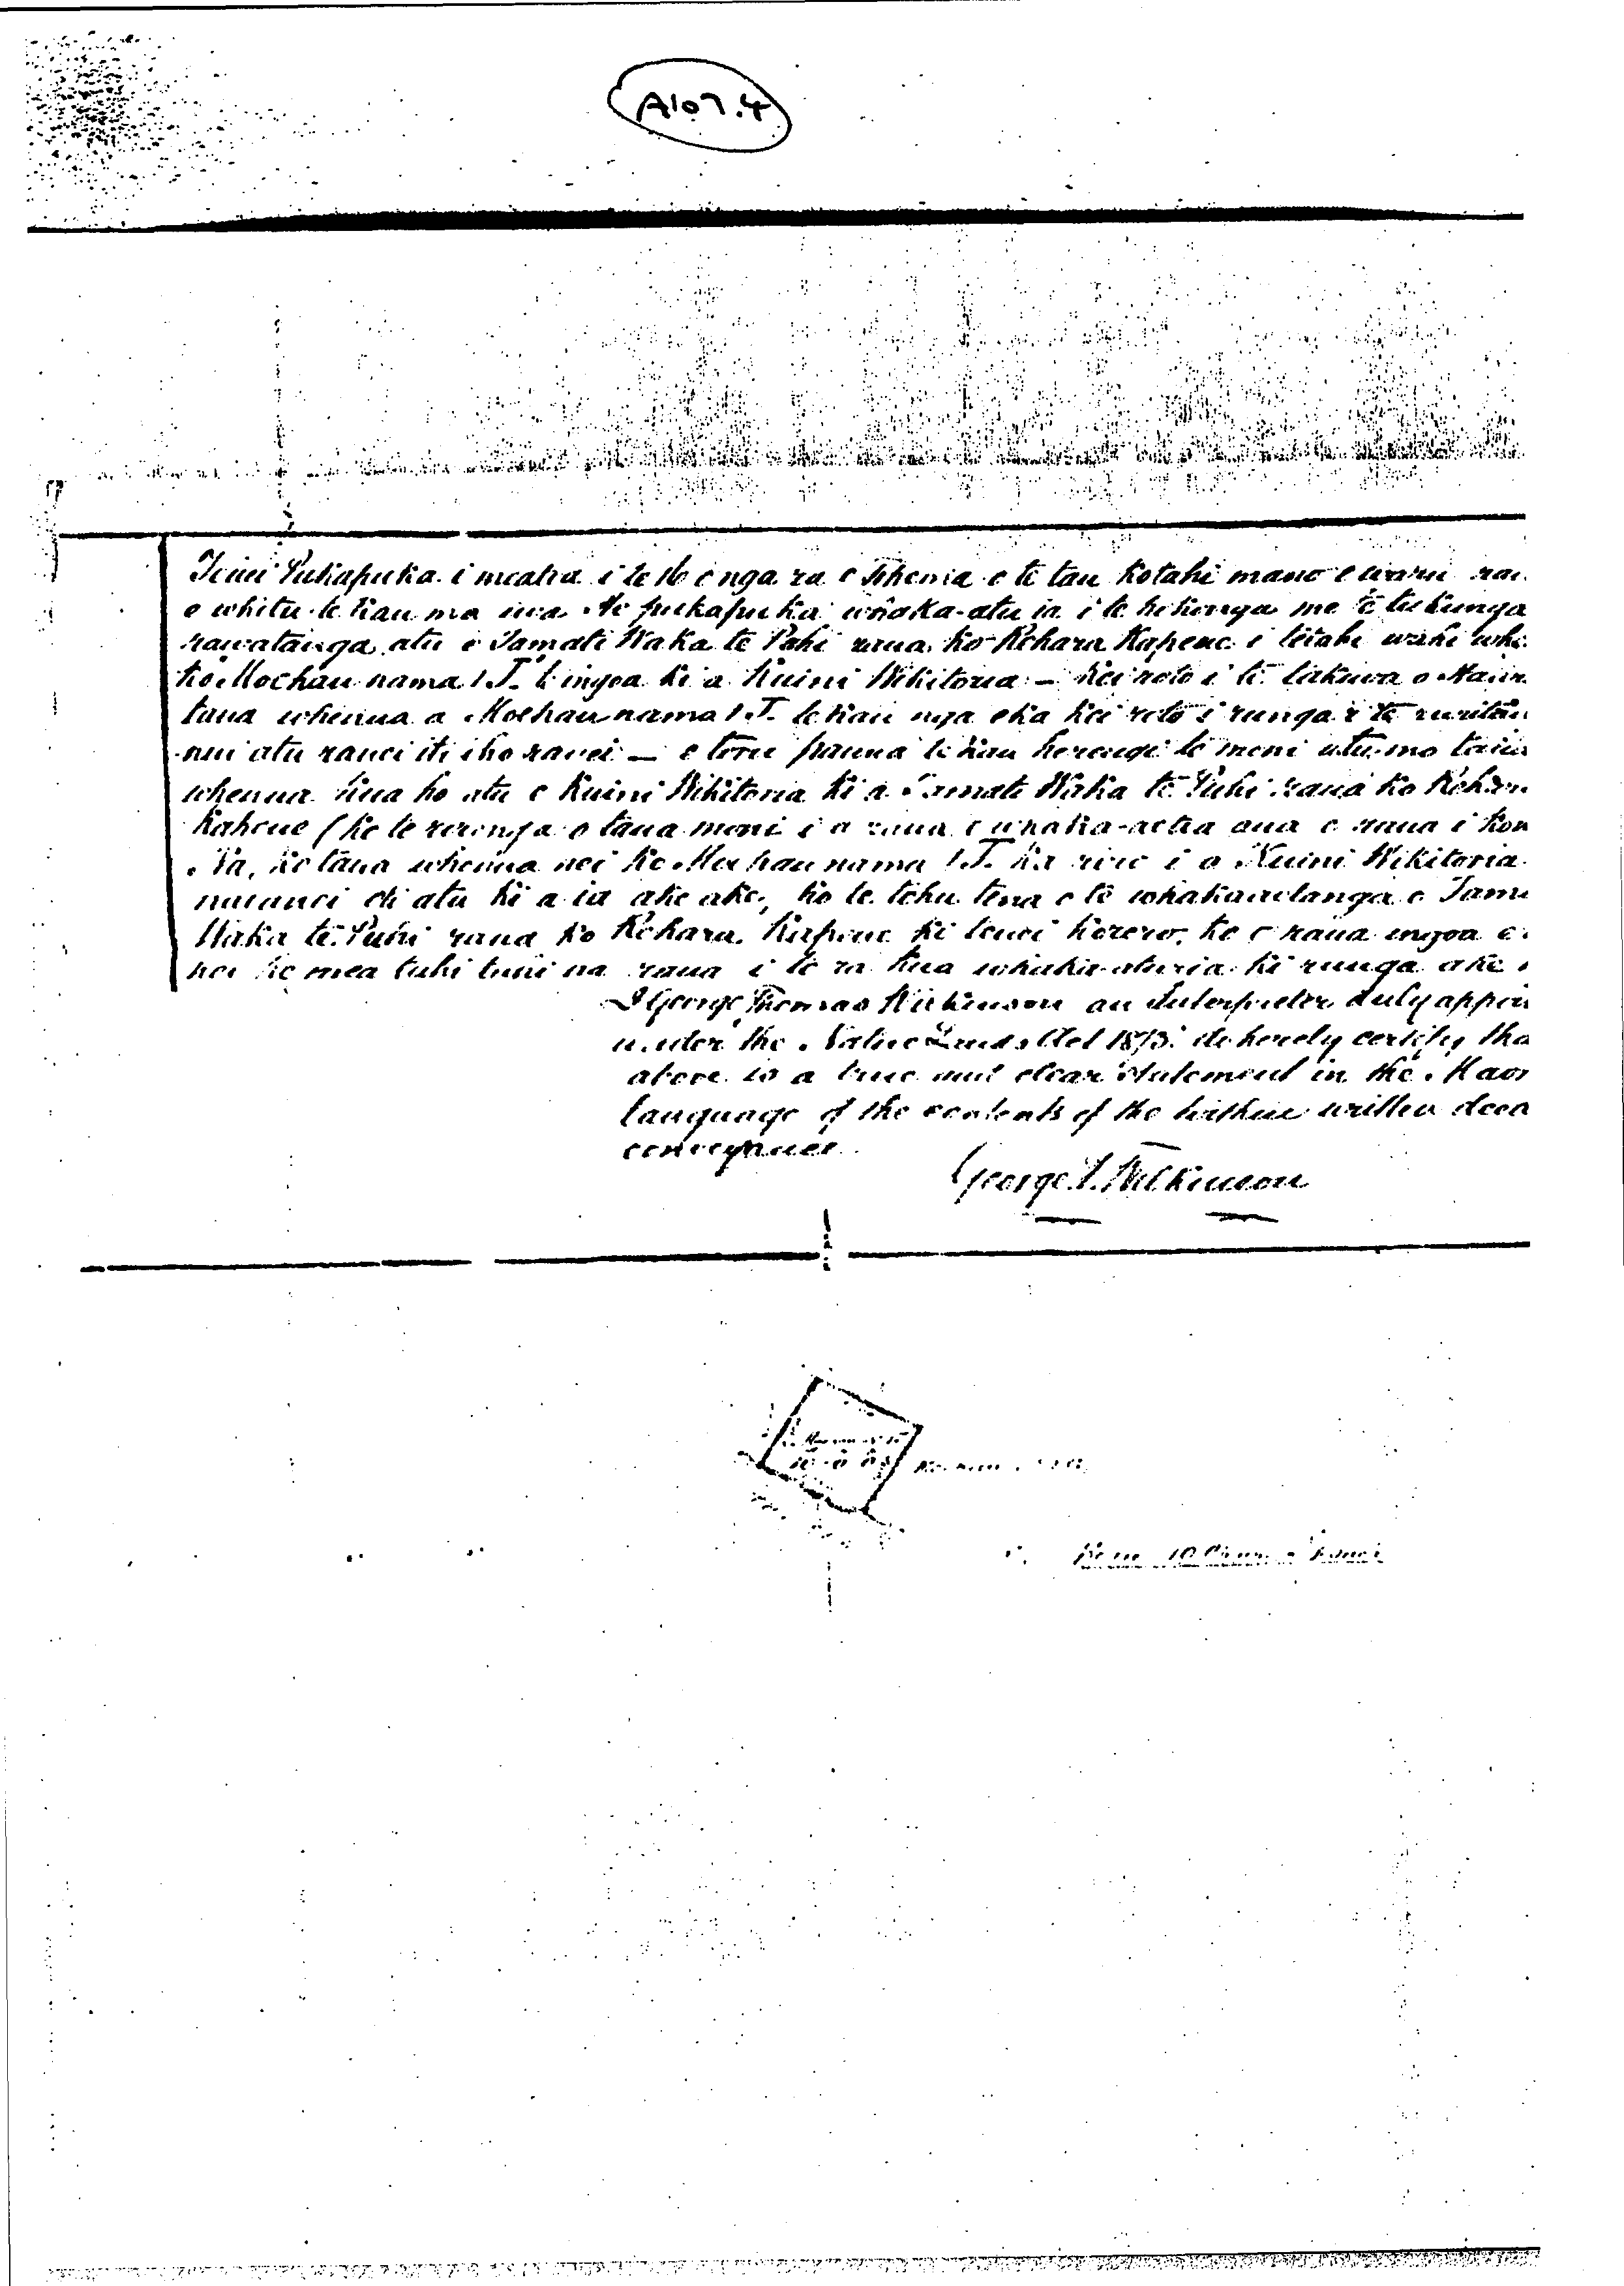 A107.4
Tenei Pukapuka i meatia i te 16 o nga ra o Tihema o te tau kotahi mano e waru rau
e whitu te kau ma iwa He pukapuka whaka-atu ia i te hokonga me te tukunga
rawatanga atu e Tamati Waka te Puhi raua ko Rehara Kapene i tetahi wahi whe
ko Moehau nama 1.T. te ingoa ki a Kuini Wikitoria – kei roto i te takiwa o Haur
taua whenua a Moehau nama 1.T. te kau nga eka kei roto i runga i te ruritan
nui atu ranei iti iho ranei – e toru pauna te kau herengi te moni utu mo taua
whenua kua ho atu e Kuini Wikitoria ki a Tamati Waka te Puhi raua ko Rehara
Kapene (ko te rironga o taua moni i a raua e whaka-aetia ana e raua i kon
Na, ko taua whenua nei ko Moehau nama 1.T. ka riro i a Kuini Wikitoria
oti atu ki a ia ake ake, ko te tohu tena o te whakaaetanga o Tama
Waka te Puhi raua ko Rehara Kapene ki tenei korero, ko o raua ingoa e
nei he mea tuhi tuhi na raua i te ra kua whaka-aturia ki runga ake
I George Thomas Wilkinson an Interpreter duly appoin
under the Native Lands Act 1873 do hereby certify tha
above is a true and clear statement in the Maor
language of the contents of the within written deed
conveyance
George T. Wilkinson